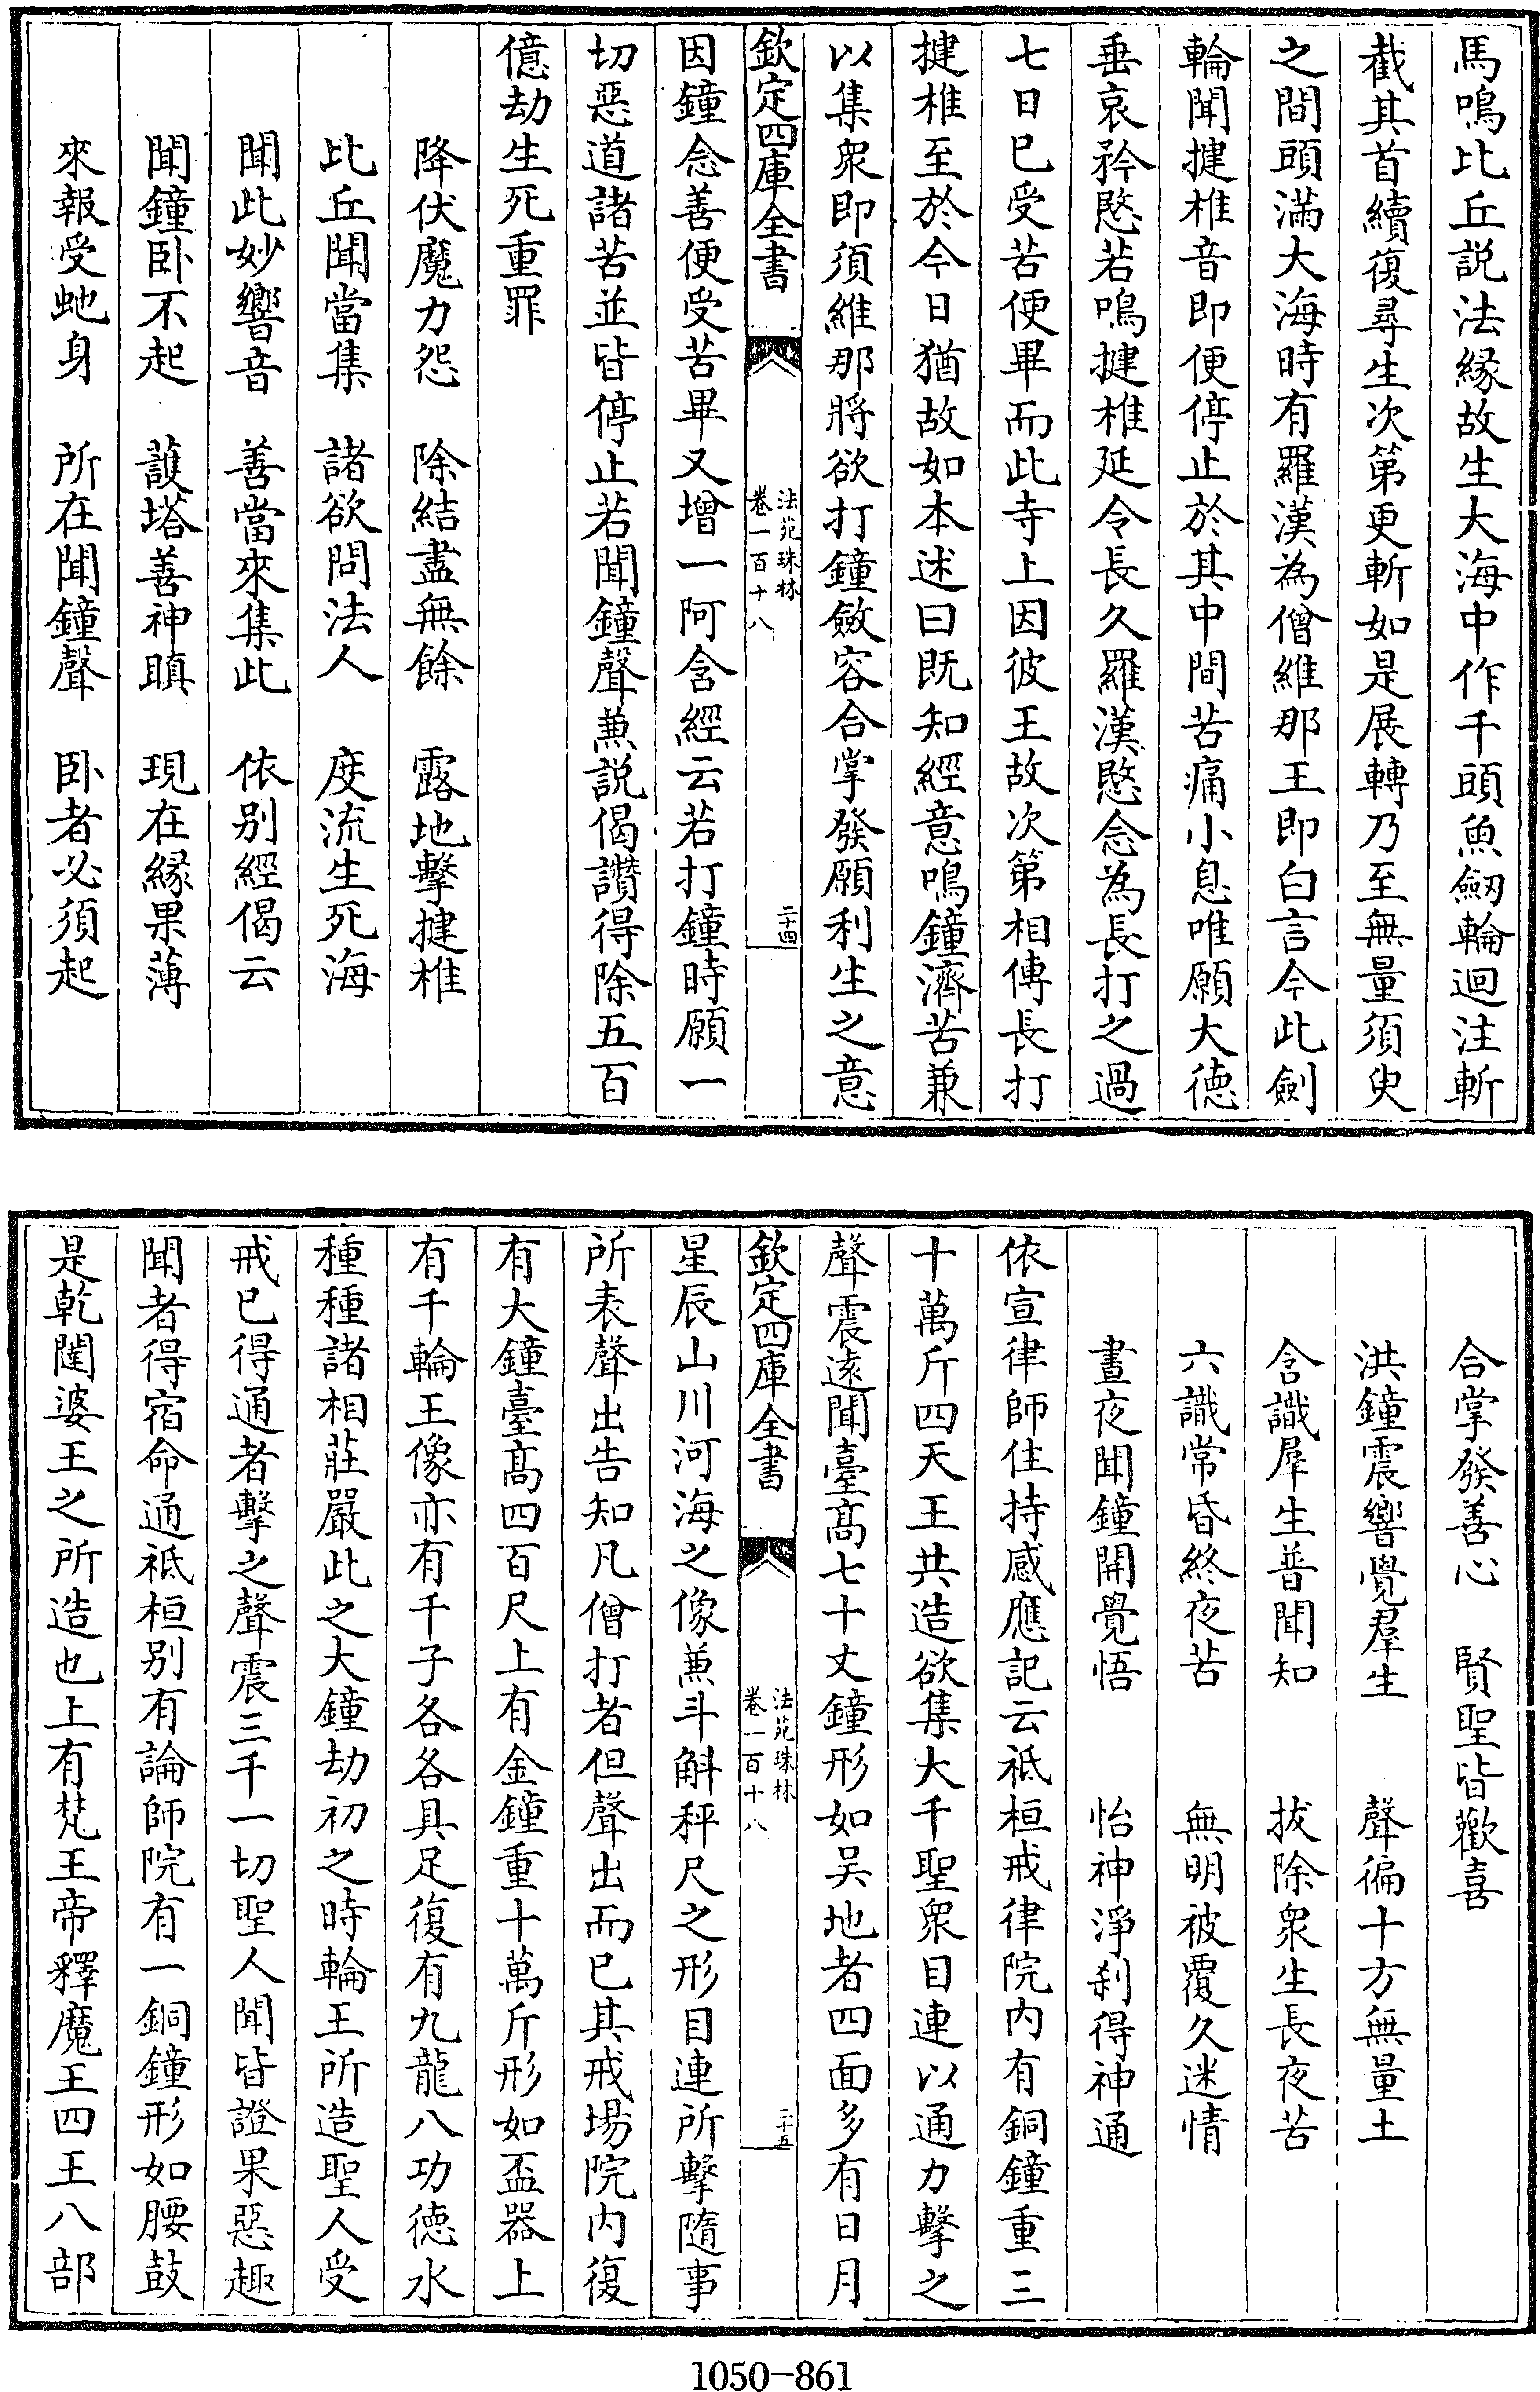 馬鳴比丘説法縁故生大海中作千頭魚劒輪迴注斬
截其首續復尋生次第更斬如是展轉乃至無量須臾
之間頭滿大海時有羅漢為僧維那王即白言今此劍
輪聞揵椎音即便停止於其中間苦痛小息唯願大德
垂哀矜愍若鳴揵椎延令長久羅漢愍念為長打之過
七日已受苦便畢而此寺上因彼王故次第相傳長打
揵椎至於今日猶故如本述曰既知經意鳴鐘濟苦兼
以集衆即須維那將欲打鐘斂容合掌發願利生之意
欽定四庫全書
法苑珠林
卷一百十八
二十四
因鐘念善便受苦畢又增一阿含經云若打鐘時願一
切惡道諸苦並皆停止若聞鐘聲兼説偈讃得除五百
億劫生死重罪
降伏魔力怨　除結盡無餘　露地擊揵椎
比丘聞當集　諸欲問法人　度流生死海
聞此妙響音　善當來集此　依别經偈云
聞鐘卧不起　䕶塔善神瞋　現在縁果薄
來報受虵身　所在聞鐘聲　卧者必須起
合掌發善心　賢聖皆歡喜
洪鐘震響覺羣生　聲徧十方無量土
含識羣生普聞知　拔除衆生長夜苦
六識常昏終夜苦　無明被覆久迷情
晝夜聞鐘開覺悟　怡神淨刹得神通
依宣律師住持感應記云祇桓戒律院内有銅鐘重三
十萬斤四天王共造欲集大千聖衆目連以通力擊之
聲震逺聞臺髙七十丈鐘形如吴地者四面多有日月
欽定四庫全書
法苑珠林
卷一百十八
二十五
星辰山川河海之像兼斗斛秤尺之形目連所擊隨事
所表聲出告知凡僧打者但聲出而已其戒場院内復
有大鐘臺髙四百尺上有金鐘重十萬斤形如盃器上
有千輪王像亦有千子各各具足復有九龍八功徳水
種種諸相莊嚴此之大鐘劫初之時輪王所造聖人受
戒已得通者擊之聲震三千一切聖人聞皆證果惡趣
聞者得宿命通祇桓别有論師院有一銅鐘形如腰鼓
是乾闥婆王之所造也上有梵王帝釋魔王四王八部
1050-861